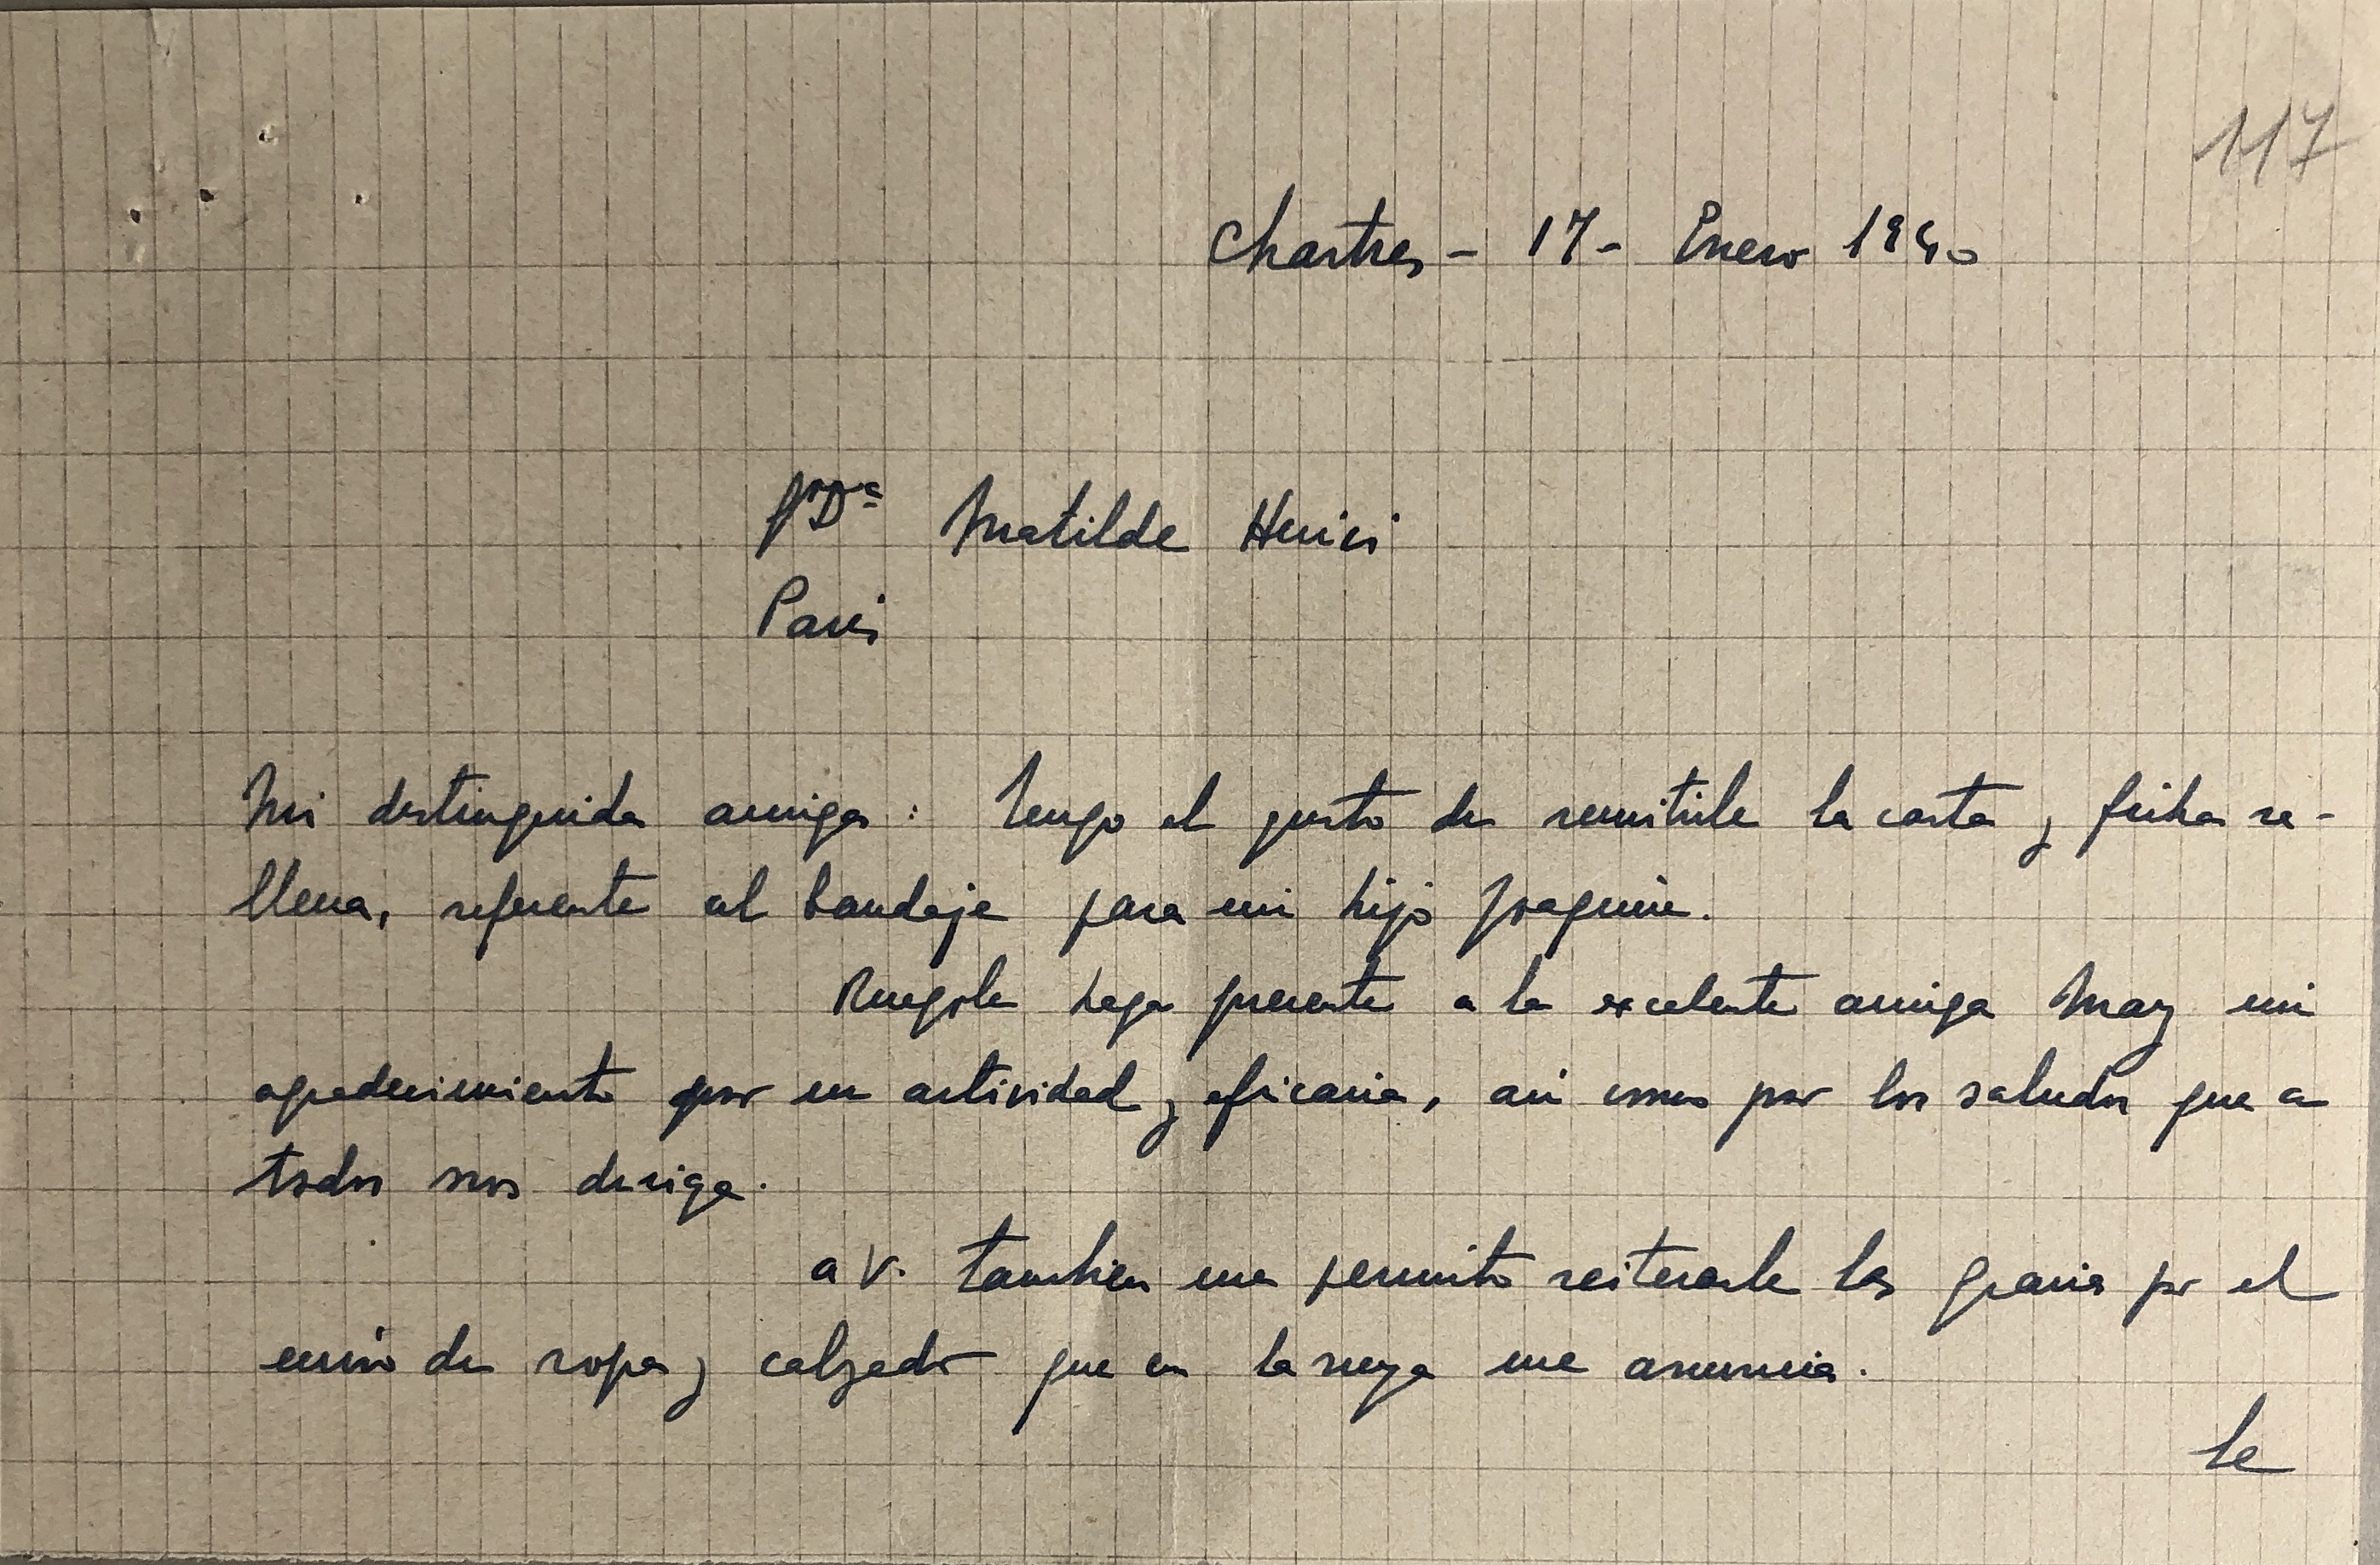 117
Chartres - 17 - Enero 1940
Dª Matilde Huici
Paris
Mi distinguida amiga: Tengo el gusto de remitirle la carta y ficha re-
llena, referente al bandaje para mi hijo Joaquin.
Ruegole haga presente a la excelente amiga May mi
agradecimiento por su actividad y eficacia, asi como por los saludos que a
todos nos diriga.
a V. tambien me permito reiterarle las gracias por el
envio de ropa y calzado que en la suya me anuncia.
Le